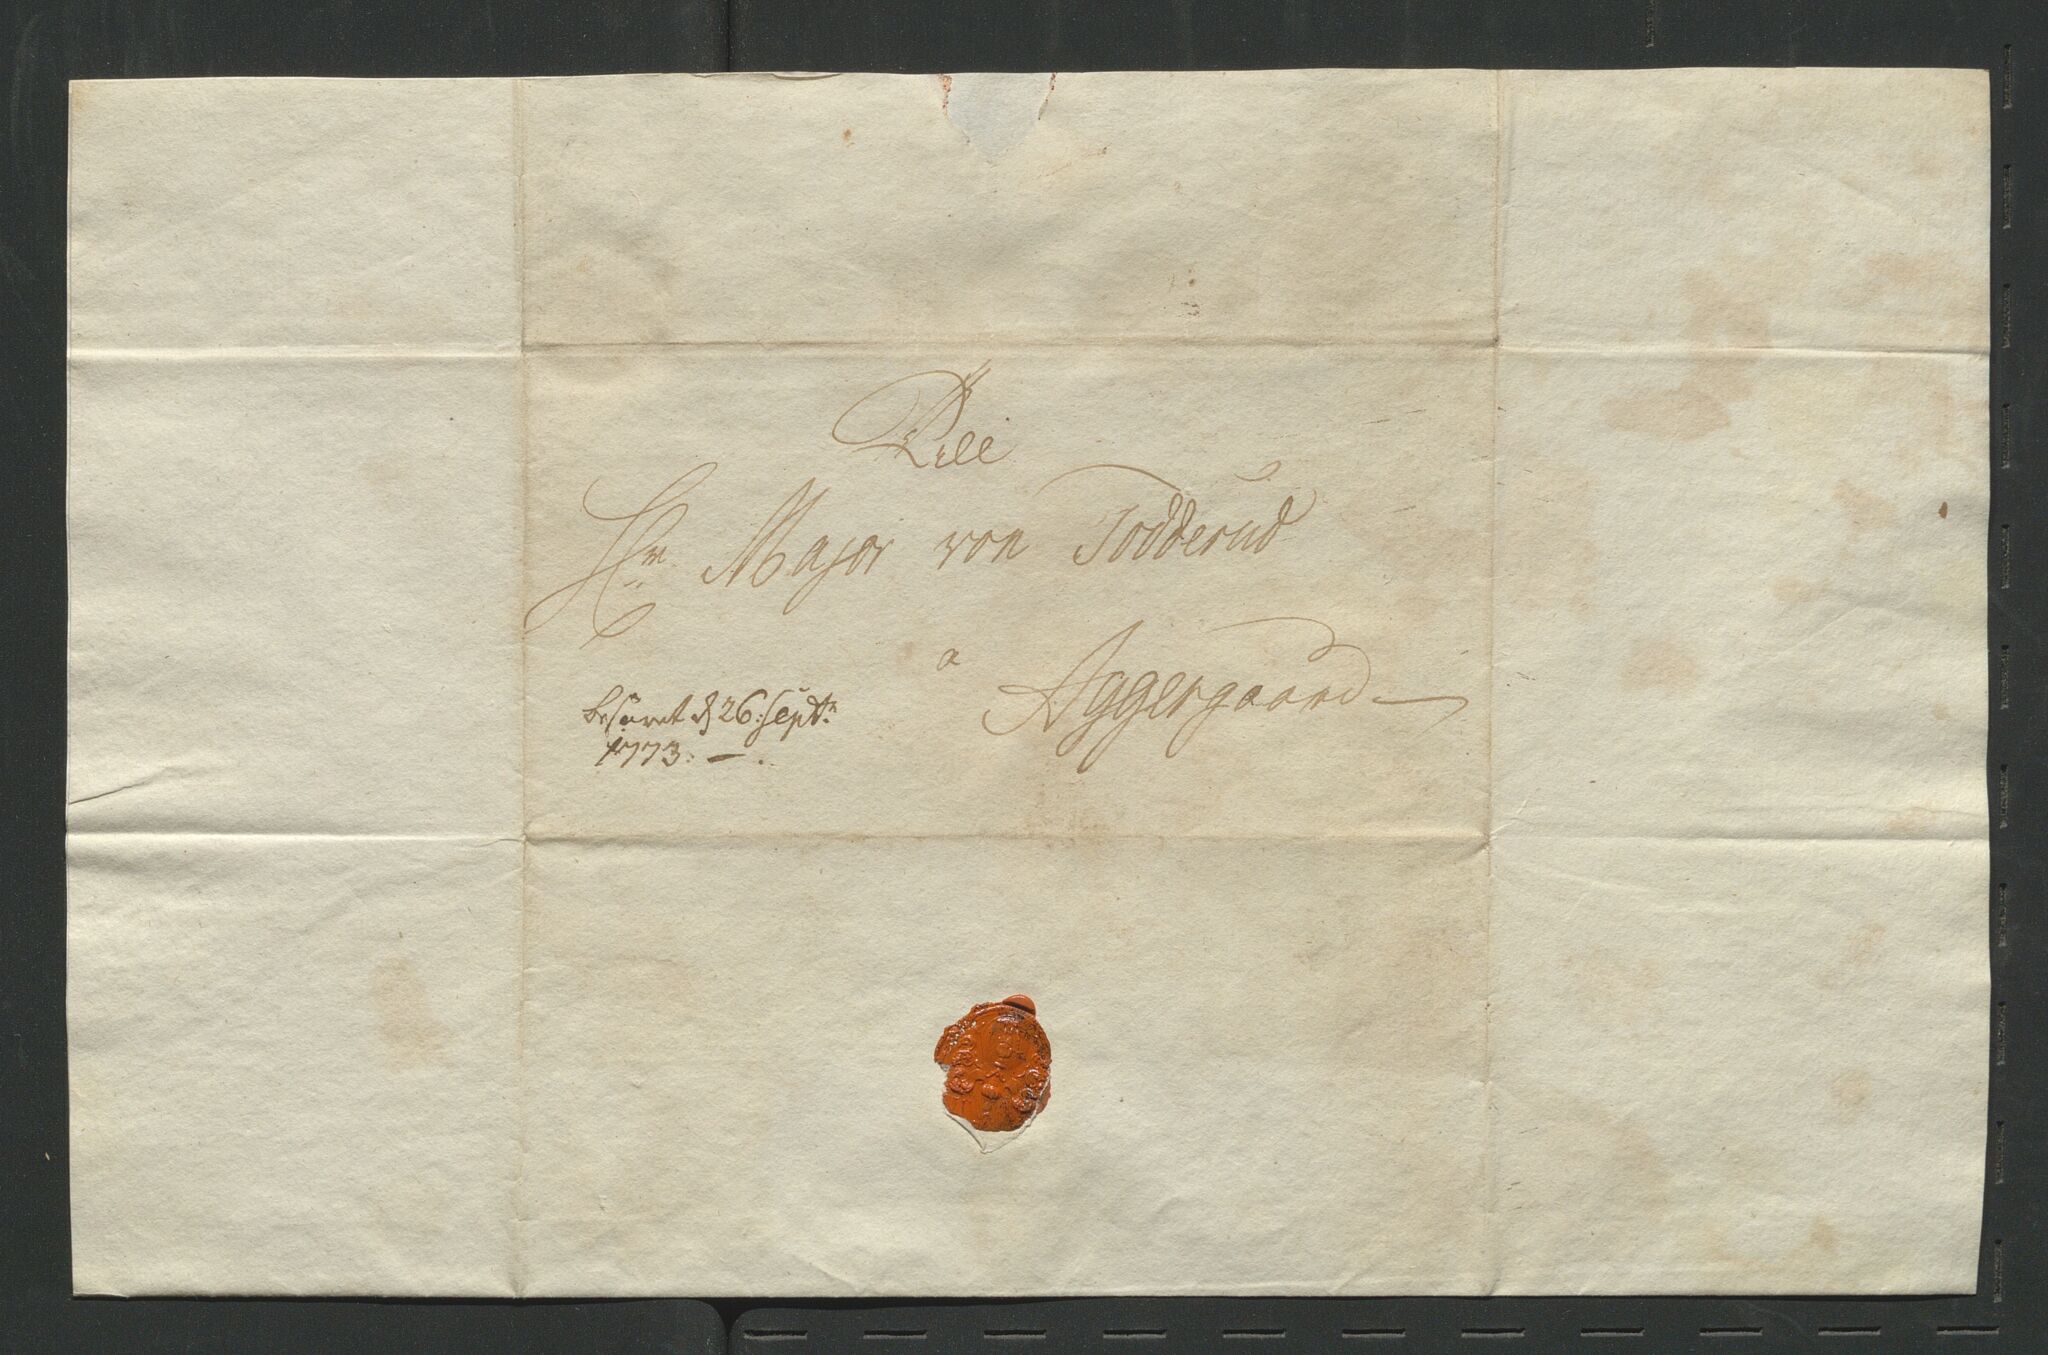 Till
Hr. Major von Todderud
a Aggergaard
besvaret d 26. septr.
1773. —.